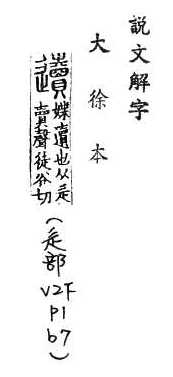 説文解字
大徐本
媟䢱也从辵
賣聲徒谷切
(辵部
V2下
P1
b7)